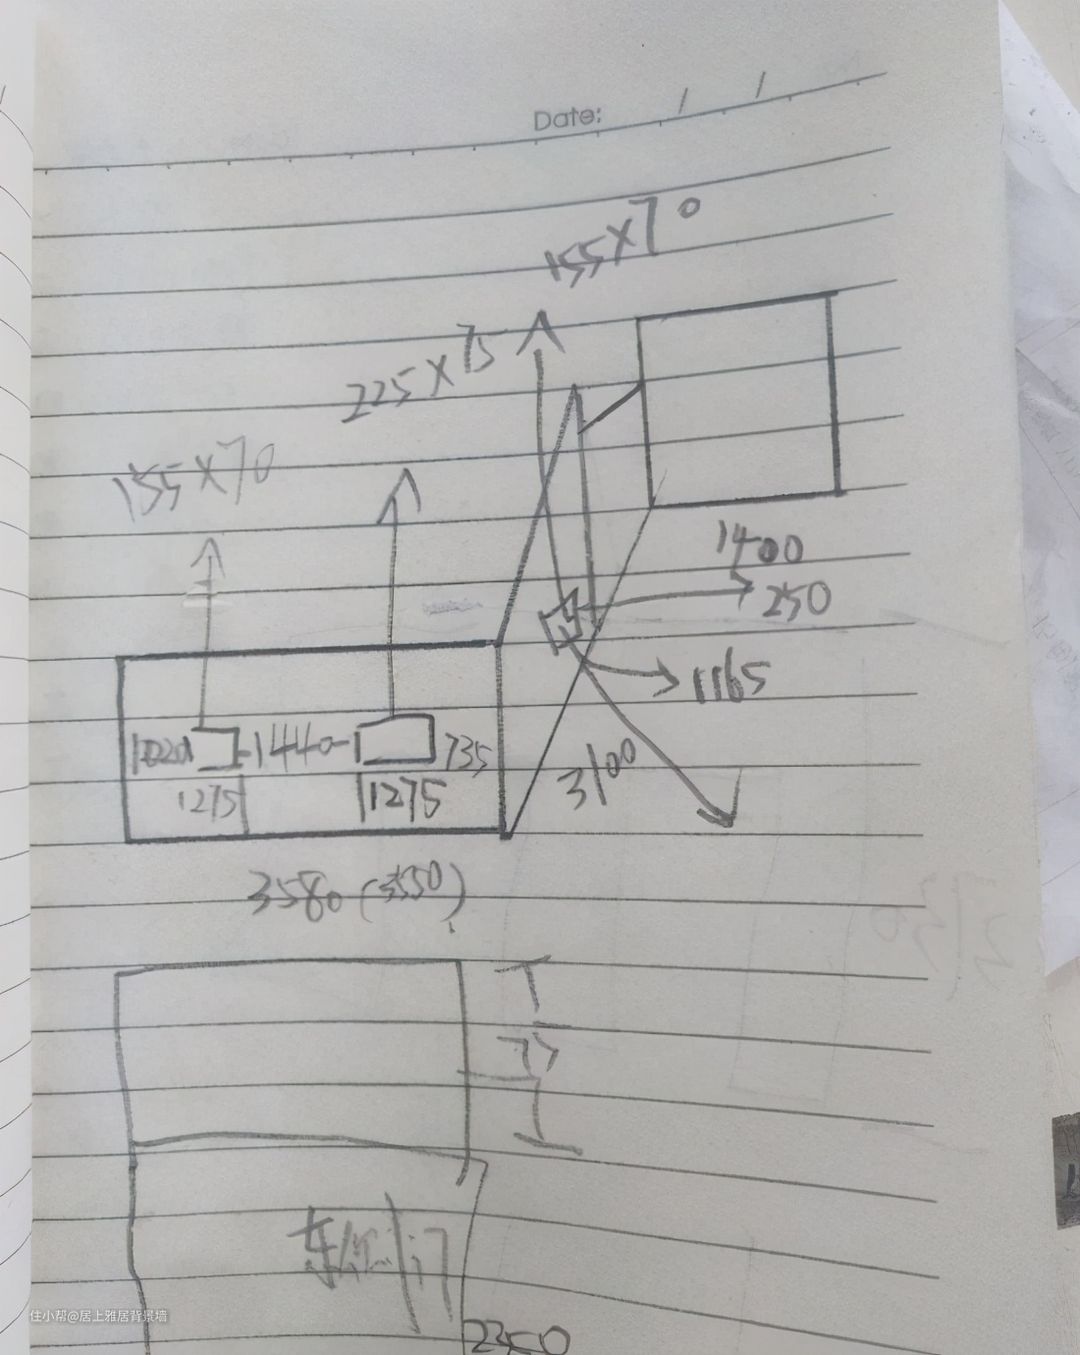 Date: / /
155×70
225×75
155×70
1400
250
1165
1020 1440 735
1275 1275
3100
3580(3550)
75
2350
住小帮@居上雅居背景墙